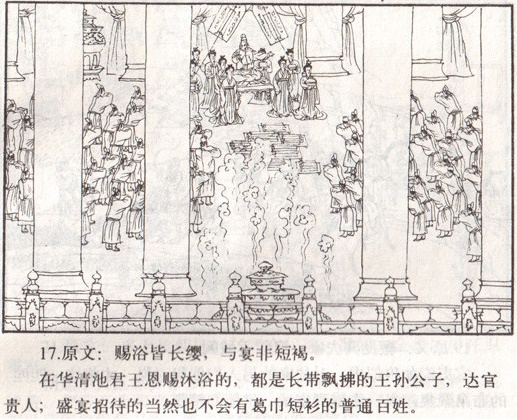 17.原文：赐浴皆长缨，与宴非短褐。
在华清池君王恩赐沐浴的，都是长带飘拂的王孙公子，达官
贵人；盛宴招待的当然也不会有葛巾短衫的普通百姓。